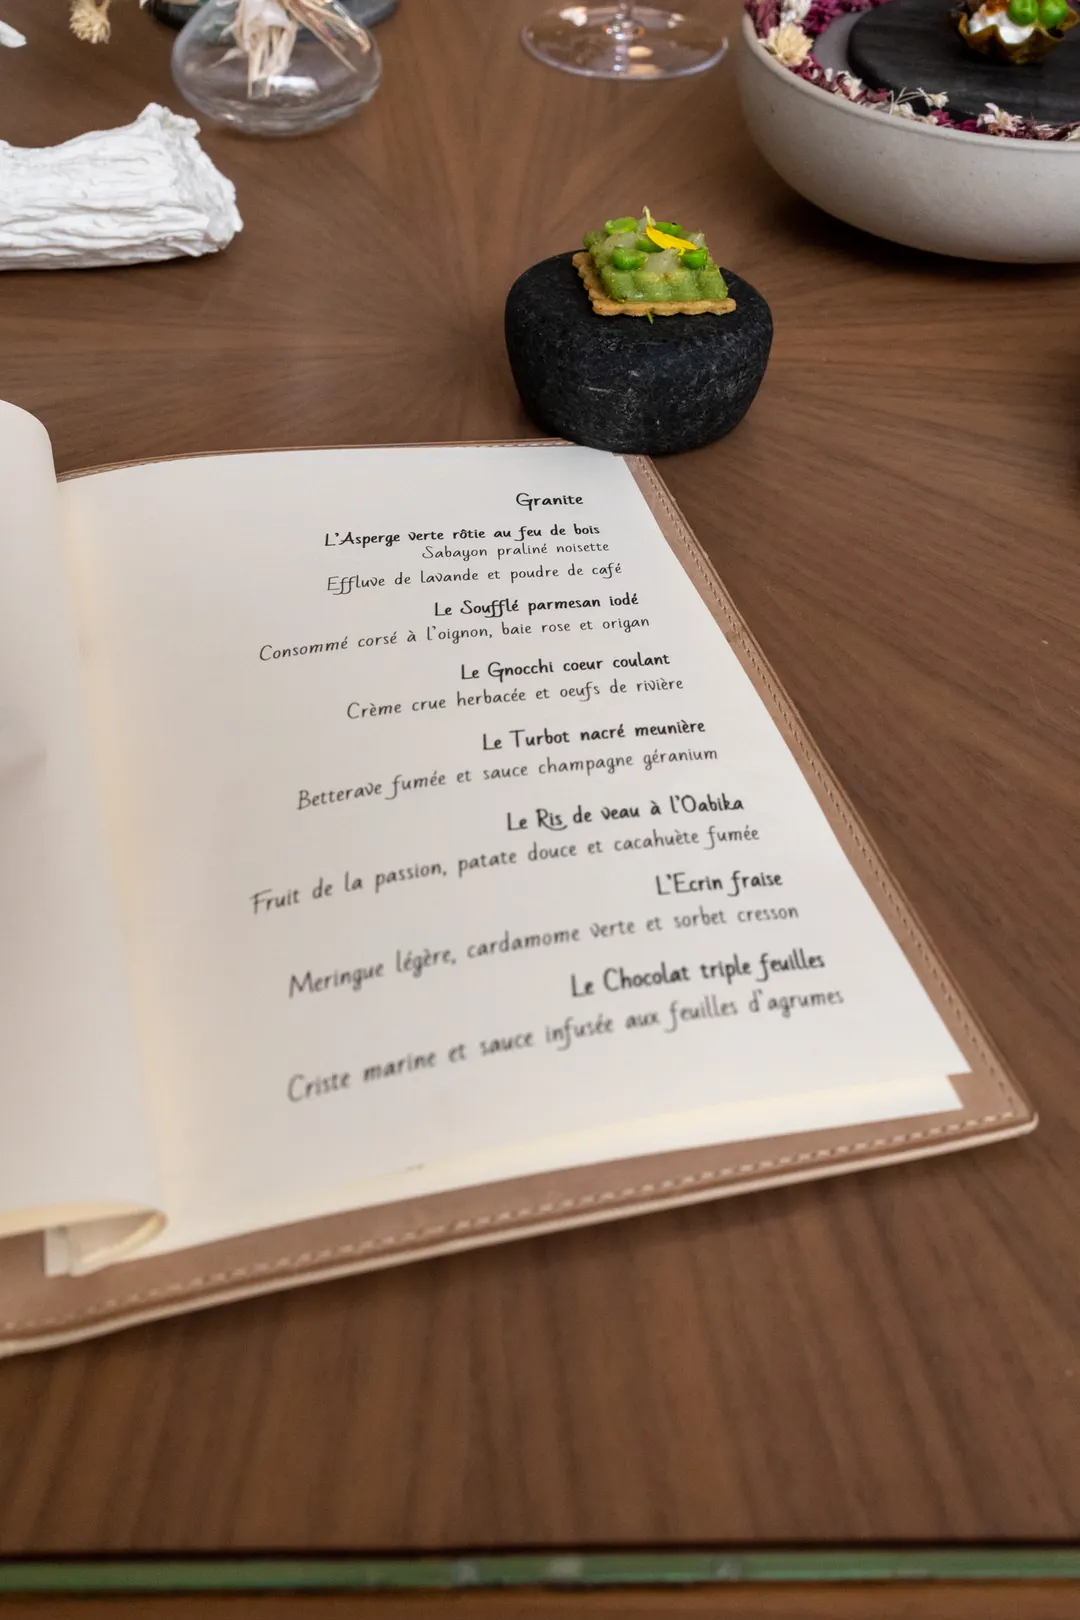 Granite
L'Asperge verte rôtie au feu de bois
Sabayon praliné noisette
Effluve de lavande et poudre de café
Le Soufflé parmesan iodé
Consommé corsé à l'oignon, baie rose et origan
Le Gnocchi coeur coulant
Crème crue herbacée et oeufs de rivière
Le Turbot nacré meunière
Betterave fumée et sauce champagne géranium
Le Ris de veau à l'Oabika
Fruit de la passion, patate douce et cacahuète fumée
L'Ecrin fraise
Meringue légère, cardamome verte et sorbet cresson
Le Chocolat triple feuilles
Criste marine et sauce infusée aux feuilles d'agrumes